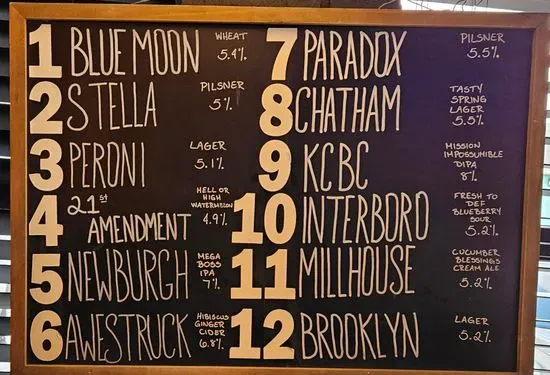 1 BLUE MOON WHEAT 5.4%
2 STELLA PILSNER 5%
3 PERONI LAGER 5.1%
4 21st AMENDMENT HELL OR HIGH WATERMELON 4.9%
5 NEWBURGH MEGA BOSS IPA 7%
6 AWESTRUCK HIBISCUS GINGER CIDER 6.8%
7 PARADOX PILSNER 5.5%
8 CHATHAM TASTY SPRING LAGER 5.5%
9 KCBC MISSION IMPOSSUMIBLE DIPA 8%
10 INTERBORO FRESH TO DEF BLUEBERRY SOUR 5.2%
11 MILLHOUSE CUCUMBER BLESSINGS CREAM ALE 5.2%
12 BROOKLYN LAGER 5.2%